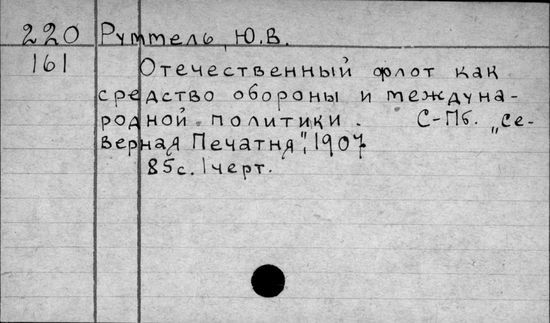 220 Руммель, Ю.В.
161 Отечественный флот как
средство обороны и междуна-
родной политики. С-Пб. „Се-
верная Печатня", 1907
85с. 1черт.